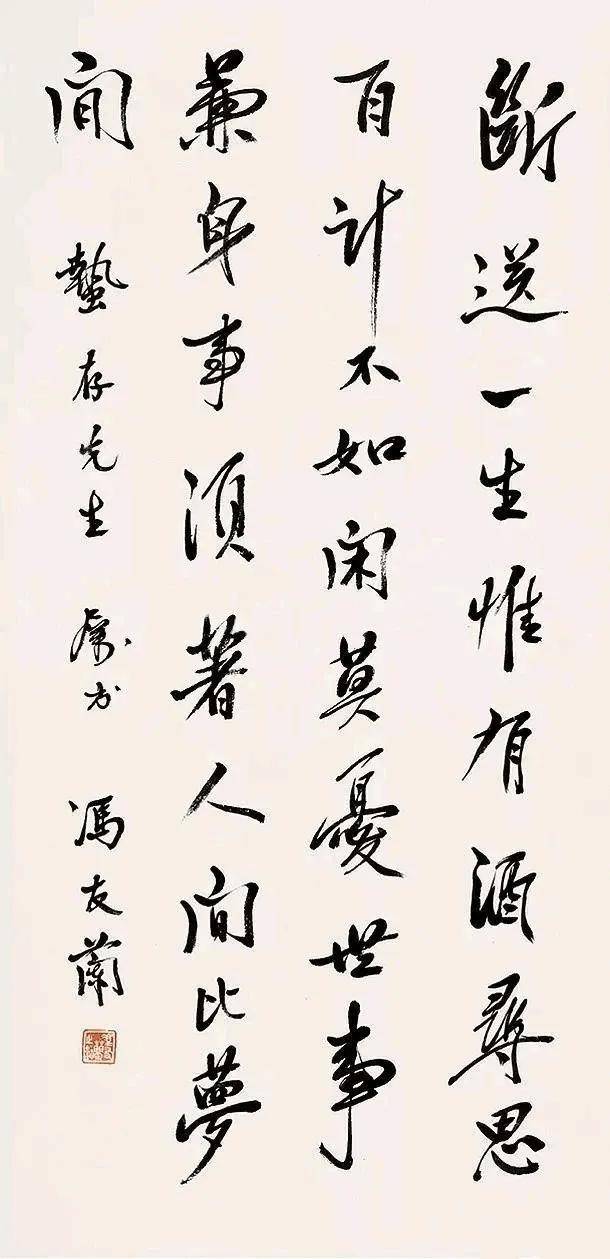 斷送一生惟有酒尋思
百計不如閑莫憂世事
兼身事須著人間比夢
間 蟄存先生 属 馮友蘭